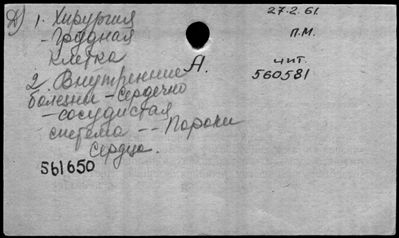 А) 1. Хирургия
- Грудная
клетка
2. Внутренние
болезни - Сердечно
- сосудистая
система -- Пороки
сердца.
561650
А.
27.2.61.
П.М.
чит.
560581